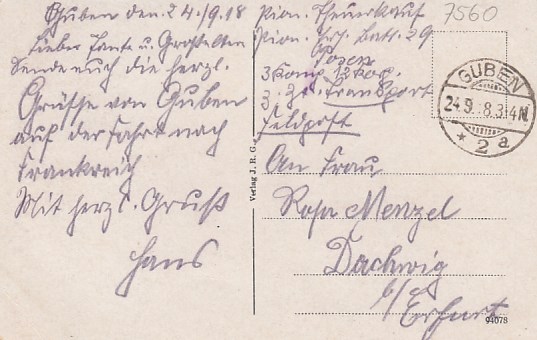 Guben den 24./9.18
Liebe Tante u. Großeltern
Sende euch die herzl.
Grüsse von Guben
auf der Fahrt nach
Frankreich
Mit herzl. Gruß
Hans
Pion. Theuerkauf
Pion. Ers. Batl. 29
Posen
3 Komp.
z. Zt. Transport
Feldpost
7560
GUBEN
24.9.18.3-4N.
* 2a
An Frau
Rosa Menzel
Dachwig
b/ Erfurt
Verlag J. R. G.
94078